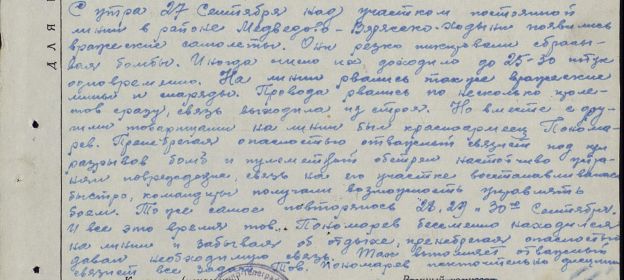 С утра 27 Сентября над участком постоянной
линии в районе Медведово - Вяряско-Ходыни появились
вражеские самолеты. Они резко пикировали сбрасы-
вая бомбы. Иногда число их доходило до 25-30 штук
одновременно. На линии рвались также вражеские
мины и снаряды. Провода рвались по несколько проле-
тов сразу, связь выходила из строя. Но вместе с дру-
гими товарищами на линии был красноармеец Понома-
рев. Пренебрегая опасностью отважный связист под
разрывов бомб и пулеметный обстрел настойчиво устра-
нял повреждение, связь на его участке восстанавливалась
быстро, командиры получали возможность управлять
боем. То же самое повторялось 28, 29 и 30го Сентября.
И все это время тов. Пономарев бессменно находился
на линии и забывая об отдыхе, пренебрегая опасностью
давал необходимую связь. Так выполняет отважный
связист все тов. Пономарев
ДЛЯ